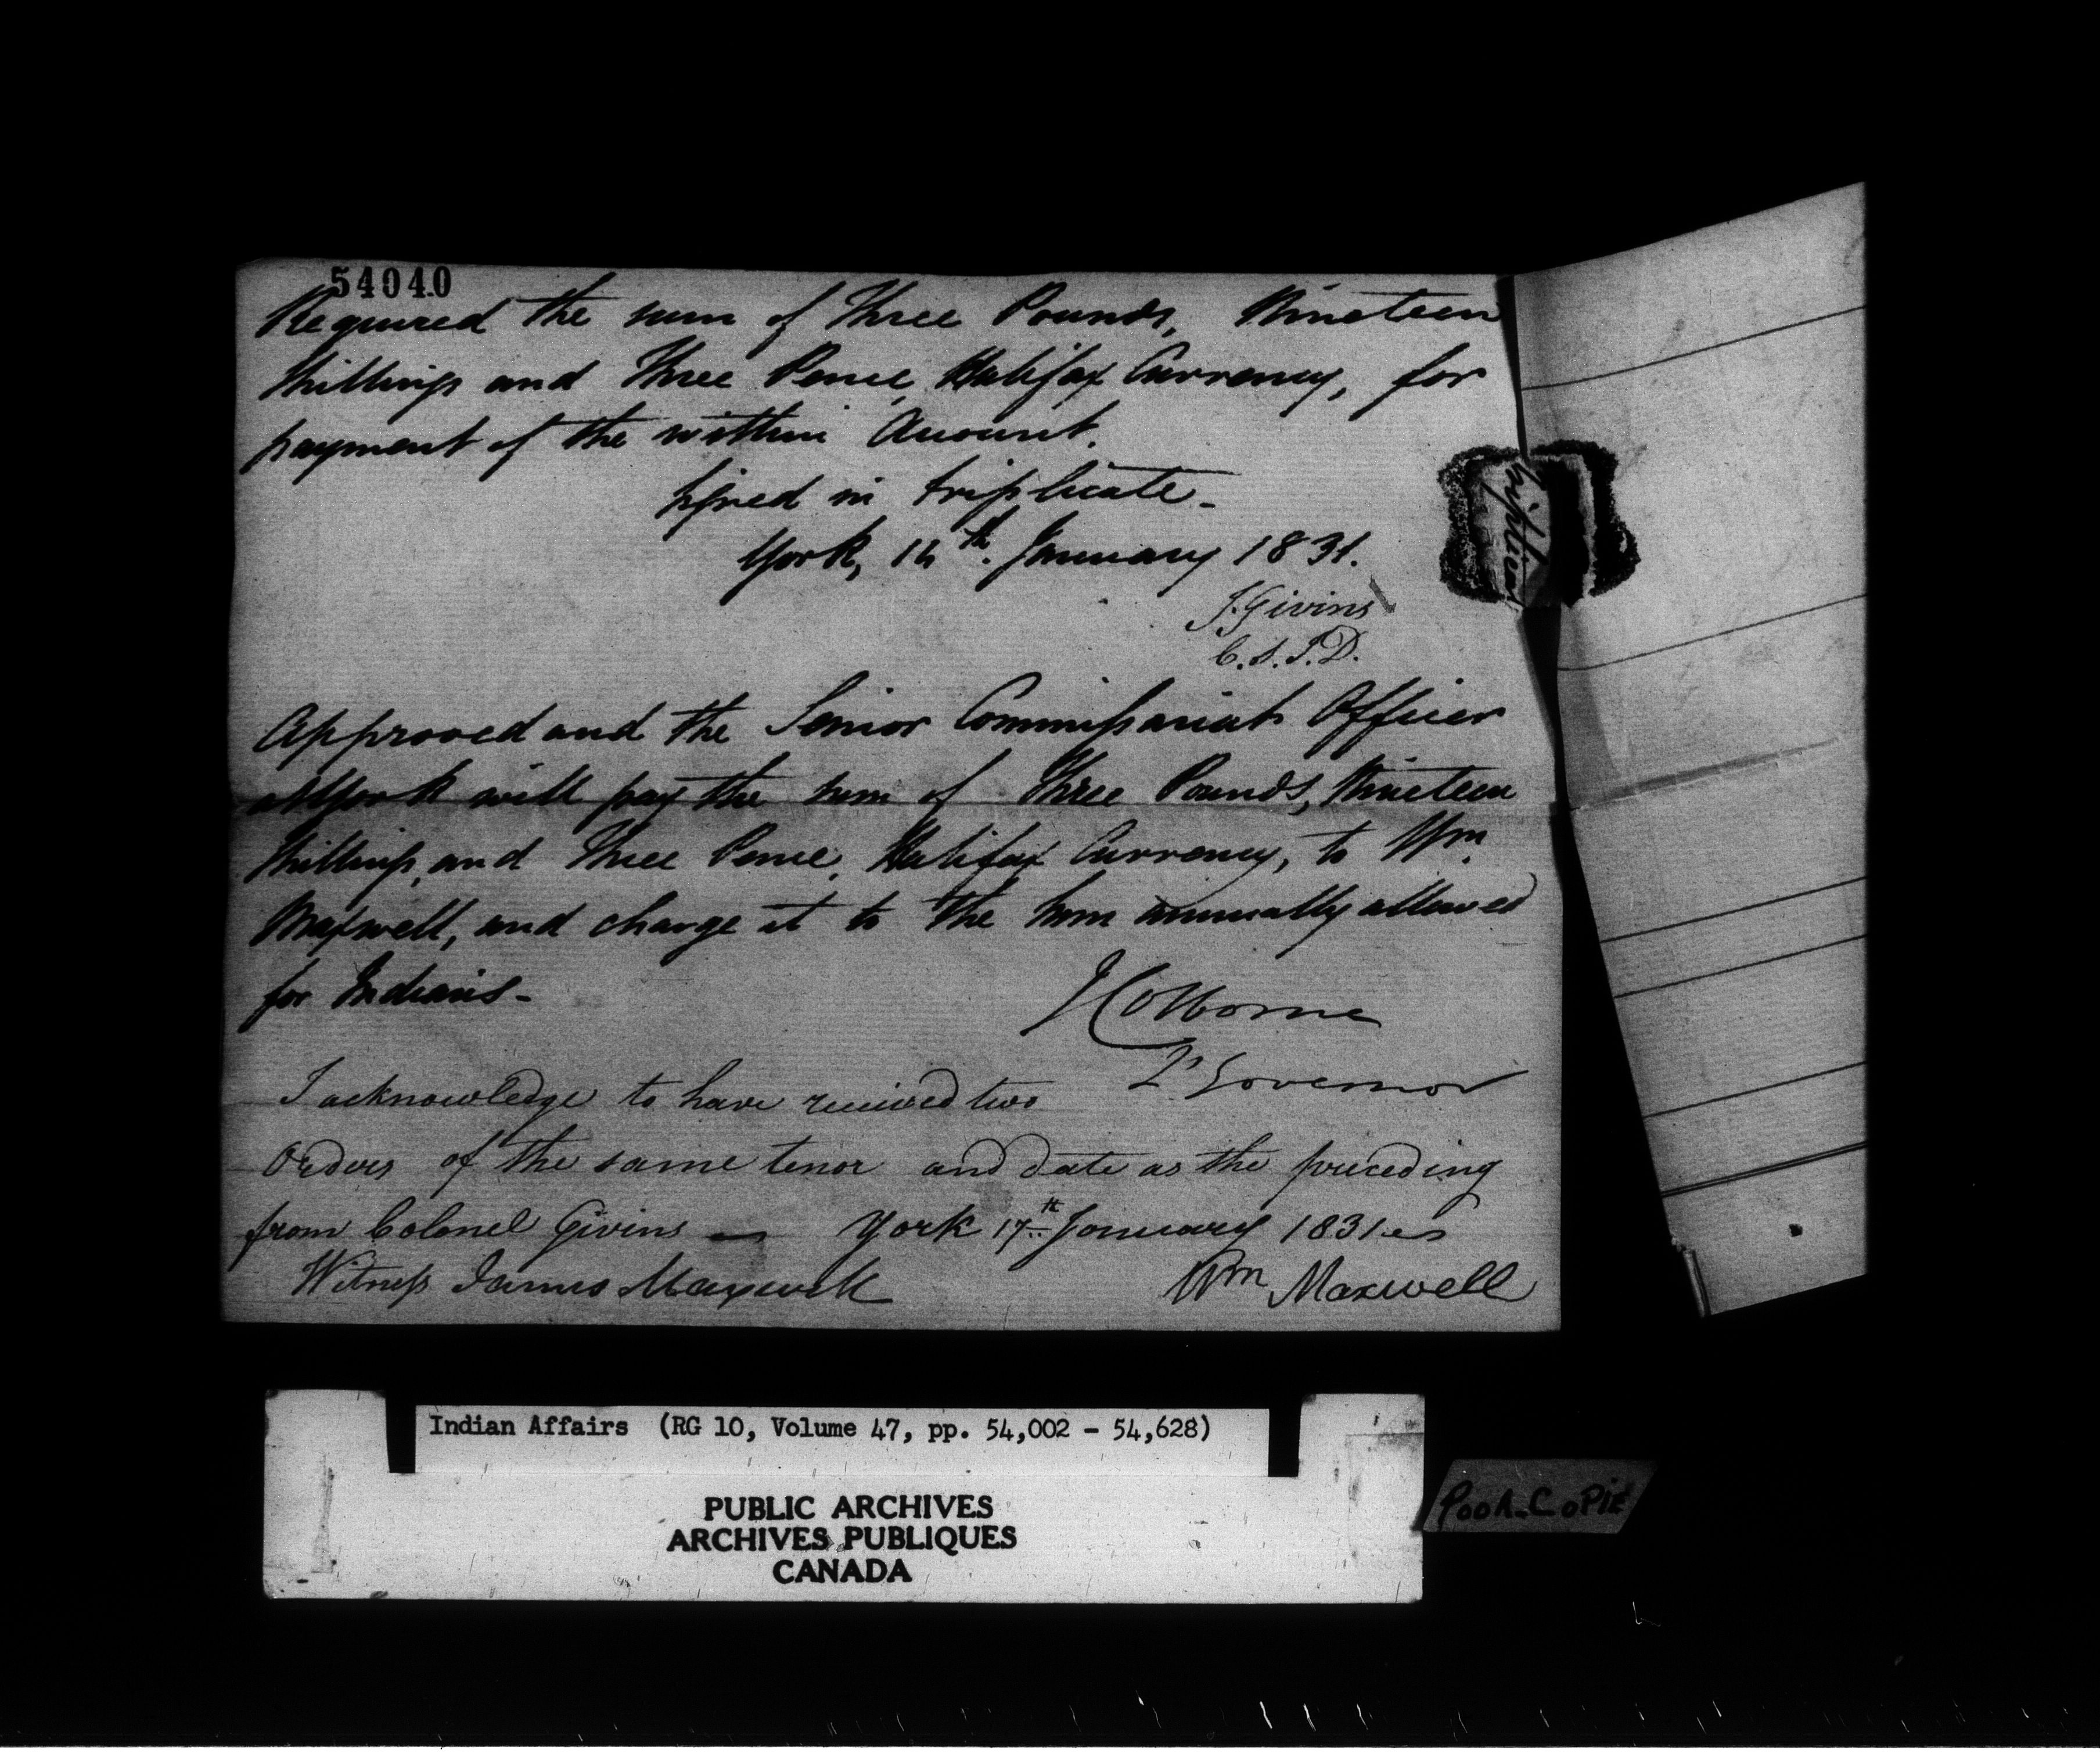 54040
Required the sum of Three Pounds, Nineteen
Shillings and Three Pence, Halifax Currency, for
payment of the within Account.
Signed in triplicate.
York, 16th. January 1831.
J. Givins
C.S.I.D.
Approved and the Senior Commissariat Officer
at York will pay the sum of Three Pounds, Nineteen
Shillings, and Three Pence, Halifax Currency, to Wm.
Maxwell, and charge it to the sum annually allowed
for Indians-
J Colborne
Lt Governor
I acknowledge to have received two
Orders of the same tenor and date as the preceding
from Colonel Givins — York 17th January 1831
Witness James Maxwell
Wm Maxwell
Indian Affairs (RG 10, Volume 47, pp. 54,002 - 54,628)
PUBLIC ARCHIVES
ARCHIVES PUBLIQUES
CANADA
POOR-COPIE